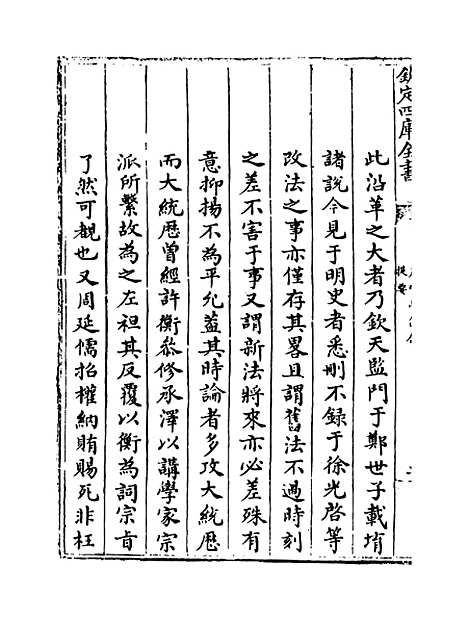 欽定四庫全書
提要
此沿革之大者乃欽天監門于鄭世子載堉
諸說今見于明史者悉刪不録于徐光啓等
改法之事亦僅存其畧且謂舊法不過時刻
之差不害于事又謂新法將來亦必差殊有
意抑揚不為平允蓋其時論者多攻大統厯
而大統厯曾經許衡叅修承澤以講學家宗
派所繫故為之左袒其反覆以衡為詞宗㫖
了然可覩也又周延儒招權納賄賜死非枉